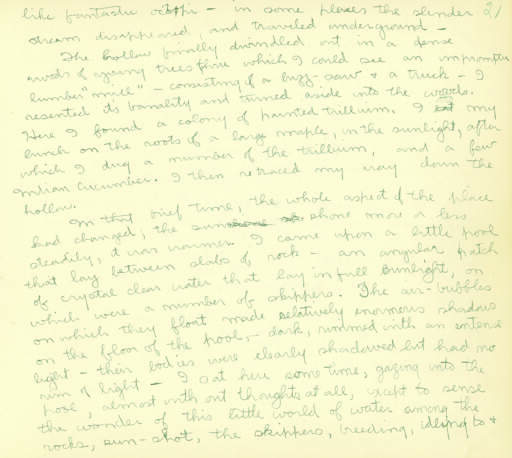 like fantastic octopi - in some places the slender 21
stream disappeared, and traveled underground -
The hollow finally dwindled out in a dense
woods of young trees thru which I could see an impromptu
lumber "mill" - consisting of a buzz-saw & a truck - I
resented its banality and turned aside into the woods.
Here I found a colony of painted trillium. I eat my
lunch on the roots of a large maple, in the sunlight, after
which I dug a number of the trillium, and a few
Indian Cucumber. I then retraced my way down the
hollow.
In that brief time, the whole aspect of the place
had changed, the sun shone more or less
steadily, it was warmer. I came upon a little pool
that lay between slabs of rock - an angular patch
of crystal clear water that lay in full sunlight, on
which were a number of skippers. The air-bubbles
on which they float made relatively enormous shadows
on the floor of the pool, - dark, rimmed with an intense
light - their bodies were clearly shadowed but had no
rim of light - I sat here some time, gazing into the
pool, almost without thoughts at all, except to sense
the wonder of this little world of water among the
rocks, sun-shot, the skippers, breeding, idling to &